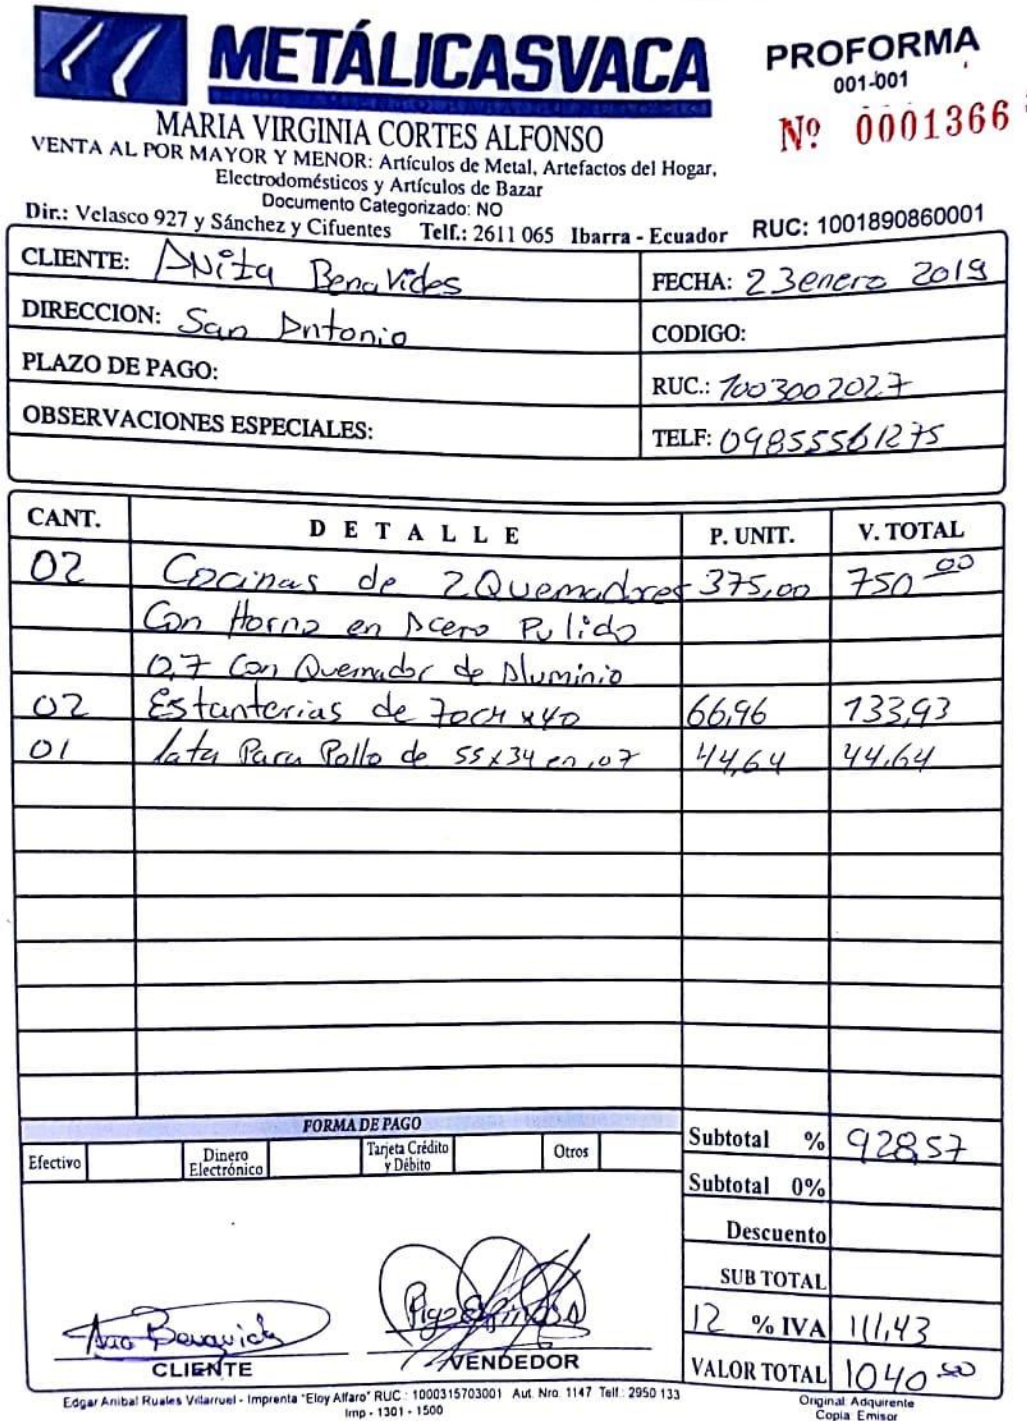 METÁLICASVACA
PROFORMA
001-001
Nº 0001366
MARIA VIRGINIA CORTES ALFONSO
VENTA AL POR MAYOR Y MENOR: Artículos de Metal, Artefactos del Hogar,
Electrodomésticos y Artículos de Bazar
Documento Categorizado: NO
Dir.: Velasco 927 y Sánchez y Cifuentes Telf.: 2611 065 Ibarra - Ecuador RUC: 1001890860001
CLIENTE: ANita Benavides
FECHA: 23 enero 2019
DIRECCION: San Antonio
CODIGO:
PLAZO DE PAGO:
RUC.: 1003002027
OBSERVACIONES ESPECIALES:
TELF: 09855561275
CANT. DETALLE P. UNIT. V. TOTAL
02 Cocinas de 2 Quemadores 375,00 750.00
Con Horno en Acero Pulido
0,7 Con Quemador de Aluminio
02 Estanterias de 70cm x 40 66,96 133,93
01 lata Para Pollo de 55x34 en ,07 44,64 44,64
FORMA DE PAGO
Efectivo
Dinero Electrónico
Tarjeta Crédito y Débito
Otros
Subtotal % 928,57
Subtotal 0%
Descuento
SUB TOTAL
12 % IVA 111,43
VALOR TOTAL 1040
Ana Benavides
CLIENTE
VENDEDOR
Edgar Anibal Ruales Villarruel - Imprenta "Eloy Alfaro" RUC : 1000315703001 Aut. Nro. 1147 Telf.: 2950 133
Imp - 1301 - 1500
Original: Adquirente
Copia: Emisor